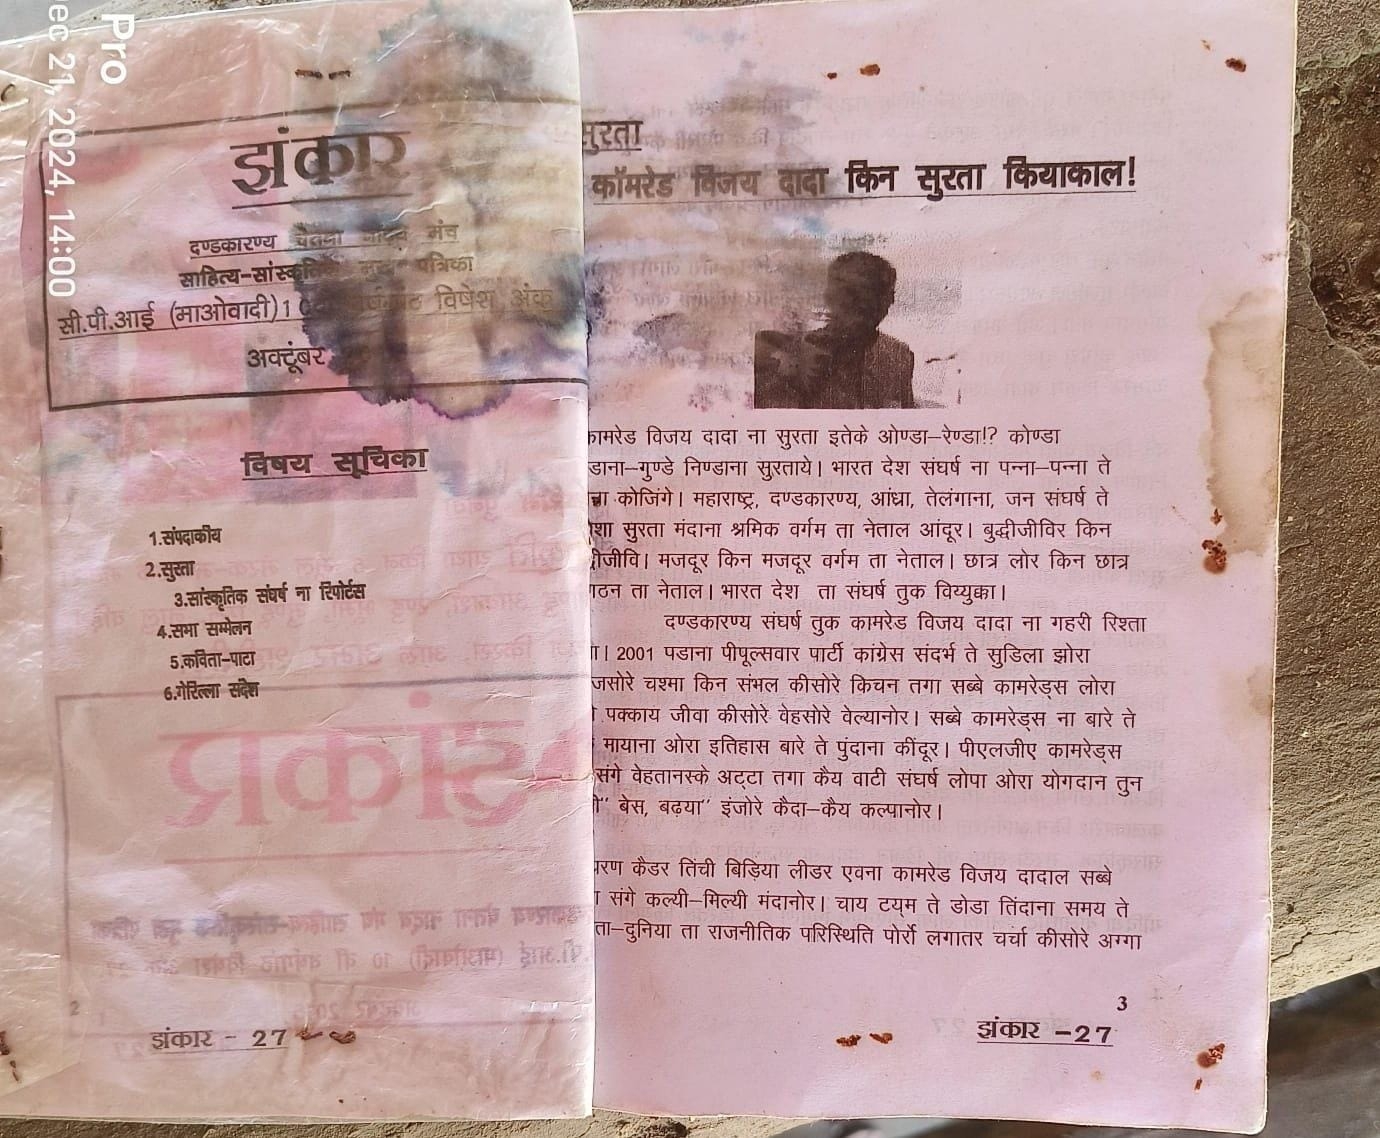 Pro
ec 21, 2024, 14:00
झंकार
दण्डकारण्य चेतना नाट्य मंच
साहित्य-सांस्कृतिक पत्रिका
सी.पी.आई (माओवादी) विषेश अंक
अक्टूंबर
विषय सूचिका
1.संपदाकीय
2.सुरता
3.सांस्कृतिक संघर्ष ना रिपोर्टस
4.सभा सम्मेलन
5.कविता-पाटा
6.गेरिल्ला संदेश
2
झंकार - 27
सुरता
कॉमरेड विजय दादा किन सुरता कियाकाल!
कामरेड विजय दादा ना सुरता इतेके ओण्डा-रेण्डा!? कोण्डा
डाना-गुण्डे निण्डाना सुरताये। भारत देश संघर्ष ना पन्ना-पन्ना ते
कोजिंगे। महाराष्ट्र, दण्डकारण्य, आंध्रा, तेलंगाना, जन संघर्ष ते
शा सुरता मंदाना श्रमिक वर्गम ता नेताल आंदूर। बुद्धीजीविर किन
जीवि। मजदूर किन मजदूर वर्गम ता नेताल। छात्र लोर किन छात्र
गठन ता नेताल। भारत देश ता संघर्ष तुक विय्युक्का।
दण्डकारण्य संघर्ष तुक कामरेड विजय दादा ना गहरी रिश्ता
। 2001 पडाना पीपूल्सवार पार्टी कांग्रेस संदर्भ ते सुडिला झोरा
जसोरे चश्मा किन संभल कीसोरे किचन तगा सब्बे कामरेड्स लोरा
पक्काय जीवा कीसोरे वेहसोरे वेल्यानोर। सब्बे कामरेड्स ना बारे ते
मायाना ओरा इतिहास बारे ते पुंदाना कींदूर। पीएलजीए कामरेड्स
संगे वेहतानस्के अट्टा तगा कैय वाटी संघर्ष लोपा ओरा योगदान तुन
" बेस, बढ़या" इंजोरे कैदा-कैय कल्पानोर।
रण कैडर तिंची बिड़िया लीडर एवना कामरेड विजय दादाल सब्बे
संगे कल्यी-मिल्यी मंदानोर। चाय टय्म ते डोडा तिंदाना समय ते
ता-दुनिया ता राजनीतिक परिस्थिति पोर्रो लगातर चर्चा कीसोरे अग्गा
3
झंकार -27